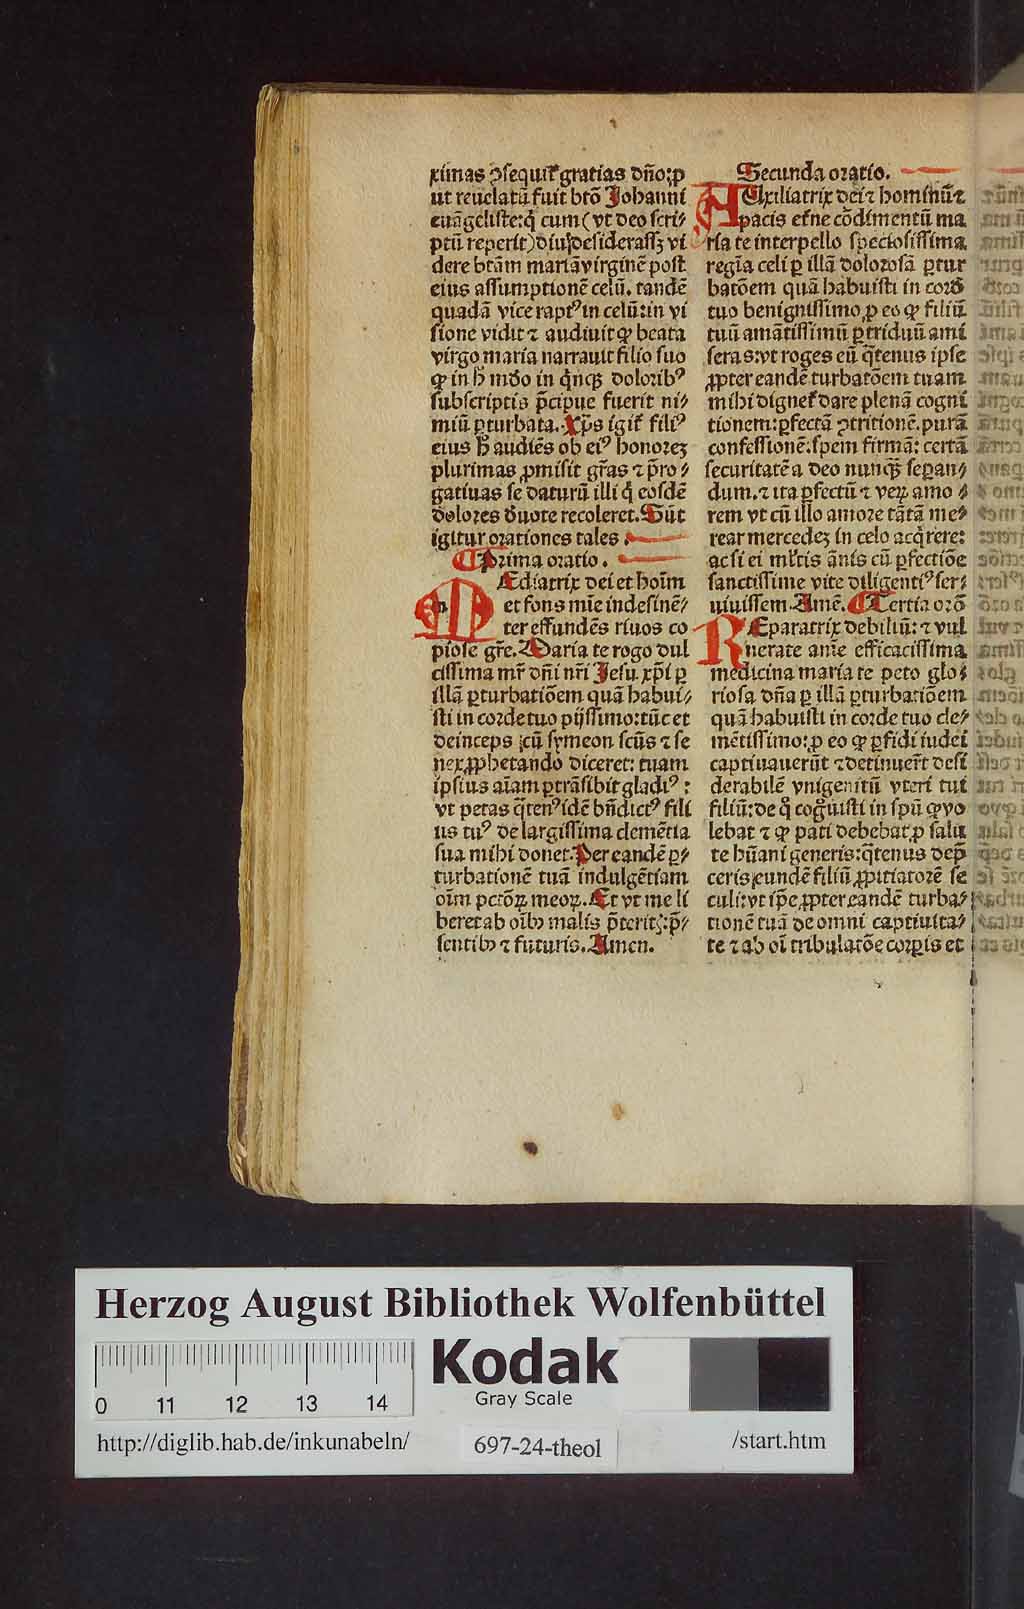 ximas ꝯsequit᷑ gratias dn̄o: ꝓ
ut reuelatū fuit btō Johanni
euāgeliste: q̇ cum (vt deo scri⸗
ptū reperit) diu desiderassꝫ vi
dere btām mariā virginē post
eius assumptionē celū. tandē
quadā vice raptꝰ in celū: in vi
sione vidit ⁊ audiuit ꝙ beata
virgo maria narrauit filio suo
ꝙ in h̄ mūdo in q̇nqꝫ doloribꝰ
subscriptis p̄cipue fuerit ni⸗
miū ꝑturbata. Xp̄s igit᷑ filiꝰ
eius h̄ audiēs ob eiꝰ honorez
plurimas ꝓmisit gr̄as ⁊ p̄ro⸗
gatiuas se daturū illi q̇ eosdē
dolores deuote recoleret. Sūt
igitur orationes tales.
Prima oratio.
MEdiatrix dei et hoīm
et fons mīe indesinē⸗
ter effundēs riuos co
piose gr̄e. Maria te rogo dul
cissima mr̄ dn̄i nr̄i Jesu xp̄i ꝑ
illā ꝑturbatiōem quā habui⸗
sti in corde tuo pijssimo: tūc et
deinceps cū symeon scūs ⁊ se
nex ꝓphetando diceret: tuam
ipsius aīam ꝑtrāsibit gladiꝰ:
vt petas q̄tenꝰ idē bn̄dictꝰ fili
us tuꝰ de largissima clemētia
sua mihi donet. Per eandē ꝑ⸗
turbationē tuā indulgētiam
oīm pctōꝝ meoꝝ. Et vt me li
beret ab oībꝫ malis p̄teritꝭ: p̄⸗
sentibꝫ ⁊ futuris. Amen.
Secunda oratio.
AUxiliatrix dei ⁊ hominū ⁊
pacis et᷑ne cōdimentū ma
ria te interpello speciosissima
regīa celi ꝑ illā dolorosā ꝑtur
batōem quā habuisti in corde
tuo benignissimo ꝓ eo ꝙ filiū
tuū amātissimū ꝑ triduū ami
seras: vt roges eū q̄tenus ipse
ꝓpter eandē turbatōem tuam
mihi dignet᷑ dare plenā cogni
tionem: ꝑfectā ꝯtritionē. purā
confessionē. spem firmā: certā
securitatē a deo nunqꝫ seꝑan⸗
dum. ⁊ ita ꝑfectū ⁊ veꝝ amo⸗
rem vt cū illo amore tātā me⸗
rear mercedez in celo acq̇rere:
acsi ei ml̓tis ānis cū ꝑfectiōe
sanctissime vite diligentiꝰ ser⸗
uiuissem. Amē. Tertia orō
REparatrix debiliū: ⁊ vul
nerate aīe efficacissima
medicina maria te peto glo⸗
riosa dn̄a ꝑ illā ꝑturbatiōem
quā habuisti in corde tuo cle⸗
mētissimo: ꝓ eo ꝙ ꝑfidi iudei
captiuauerūt ⁊ detinuer̄t desi
derabilē vnigenitū vteri tui
filiū: de q̇ cognuisti in spū ꝙ vo
lebat ⁊ ꝙ pati debebat ꝓ salu
te hūani generis: q̄tenus dep̄
ceris eundē filiū ꝓpitiatorē se
culi: vt ip̄e ꝓpter eandē turba⸗
tionē tuā de omni captiuita⸗
te ⁊ ab oī tribulatōe corꝑis et
Herzog August Bibliothek Wolfenbüttel
Kodak
Gray Scale
0 11 12 13 14
http://diglib.hab.de/inkunabeln/ 697-24-theol /start.htm